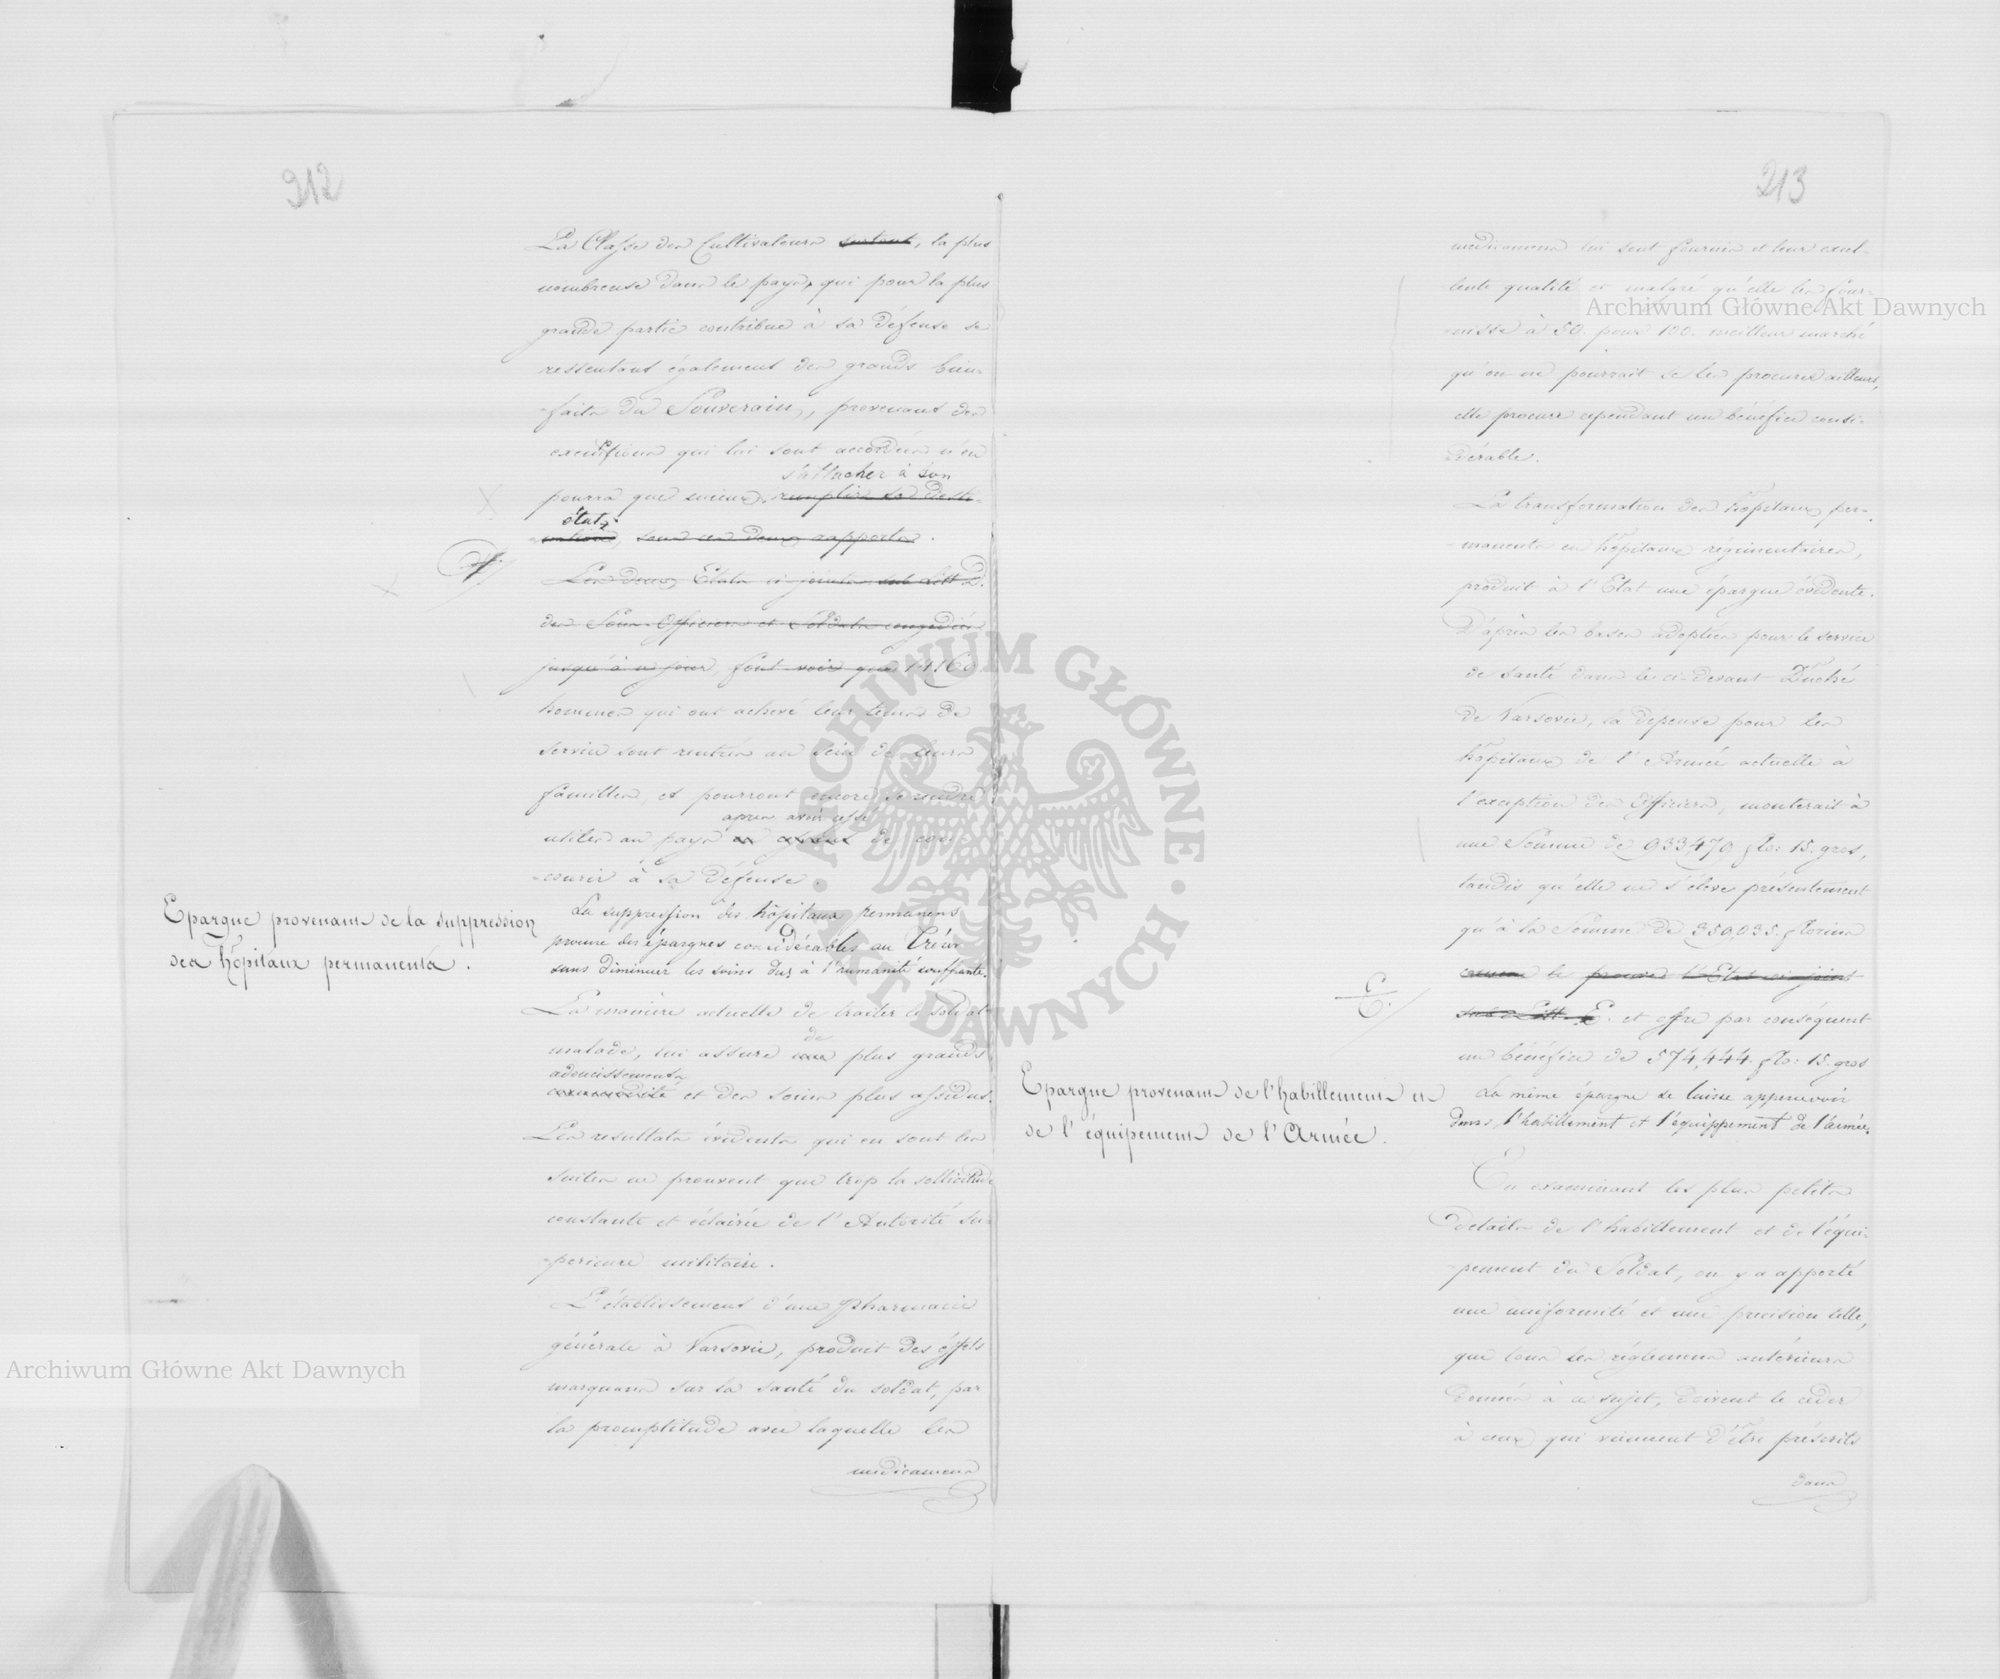 212
La Classe des Cultivateurs surtout, la plus
nombreuse dans le pays, qui pour la plus
grande partie contribue à sa défense se
ressentant également des grands bien-
-faits du Souverain, provenant des
qui lui sont accordées n'en
s'attacher à son
pourra que mieux remplir sa desti-
état.
-nation, sous ces deux rapports.
Les deux Etats ci-joints sub Litt D.
des Sous-Officiers et Soldats congédiés
jusqu'à ce jour, font voir que
hommes qui ont achevé leur tems de
service sont rentrés au sein de leurs
familles, et pourront encore se rendre
apres avoir cessé
utiles au pays de con-
-courir à sa défense.
Epargne provenant de la suppression
des hôpitaux permanents.
La suppression des hôpitaux permanens
procure des épargnes considérables au Trésor
sans diminuer les soins dus à l'humanité souffrante.
La manière actuelle de traiter le soldat
de
malade, lui assure une plus grands
adoucissements
commodité et des soins plus assidus.
Les resultats évidents qui en sont les
suites ne prouvent que trop la sollicitude
constante et éclairée de l'Autorité su-
-perieure militaire.
L'établissement d'une Pharmacie
générale à Varsovie, produit des effets
marquans sur la santé du soldat, par
la promptitude avec laquelle les
medicamens
213
medicamens lui sont fournis et leur excel-
-lente qualité et malgré qu'elle les four-
-nisse à 50. pour 100. meilleur marché
qu'on ne pourrait se les procurer ailleurs,
elle procure cependant un bénéfice consi-
-dérable.
La transformation des hôpitaux per-
-manents en hôpitaux régimentaires,
produit à l'Etat une épargne évidente.
D'après les bases adoptées pour le service
de santé dans le ci-devant Duché
de Varsovie, la dépense pour les
hôpitaux de l'Armée actuelle à
l'exception des Officiers, monterait à
une Somme de 933,479 flo: 15. gros,
tandis qu'elle ne s'élève présentement
qu'à la Somme de 359,035. florins
comme le prouve l'Etat ci-joint
sub Litt. E. et offre par conséquent
un bénéfice de 574,444. flo: 15. gros
Epargne provenant de l'habillement et
de l'équipement de l'Armée.
La même épargne se laisse appercevoir
dans l'habillement et l'équippement de l'armée.
En examinant les plus petits
details de l'habillement et de l'équi-
-pement du Soldat, on y a apporté
une uniformité et une precision telle,
que tous les réglemens antérieurs
donnés à ce sujet, doivent le céder
à ceux qui viennent d'être préscrits
dans
Archiwum Główne Akt Dawnych
Archiwum Główne Akt Dawnych
ARCHIWUM GŁÓWNE · AKT DAWNYCH ·